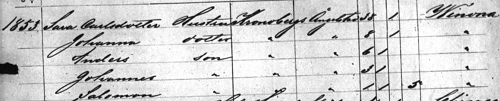 1853. Sara Carlsdotter Hustru Kronobergs Ängelstad 38 1 Winona
Johanna dotter " " 8 1 "
Anders son " " 6 1 "
Johannes " " " 3 1 "
Salomon " " " 1 1 5 "